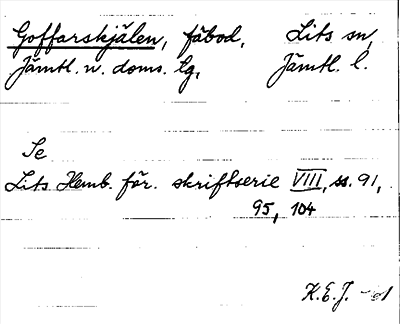 Goffarskjälen, fäbod, Lits sn,
Jämtl. n. doms. lg, Jämtl. l.
Se
Lits Hemb. för. skriftserie VIII, ss. 91,
95, 104
K.E.J.